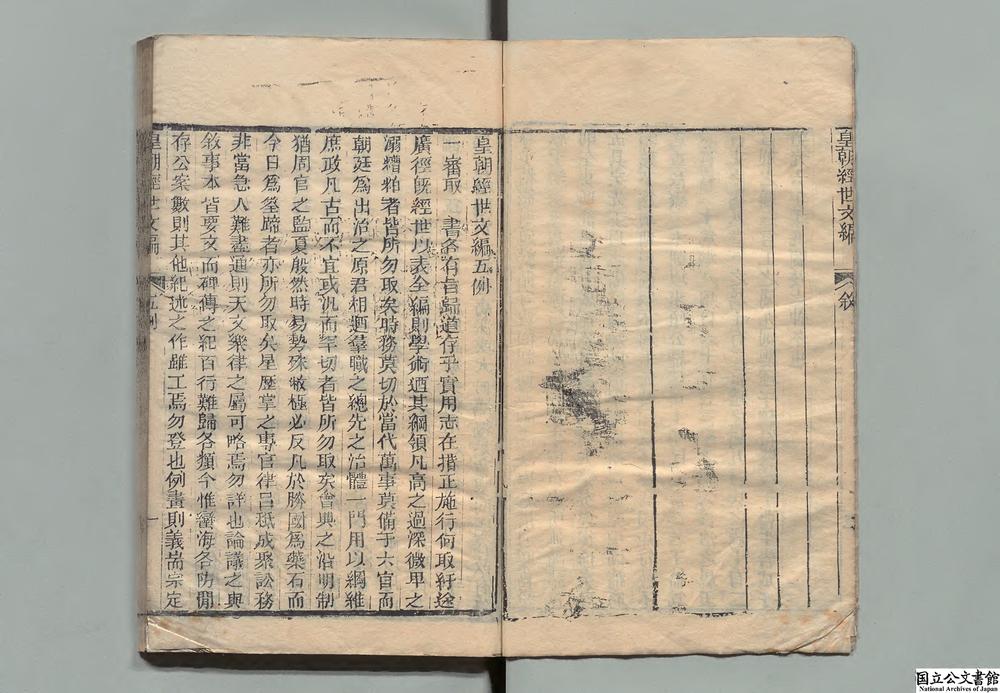 皇朝經世文編
敘
皇朝經世文編五例
一審取 書各有旨歸道存乎實用志在措正施行何取紆途
廣徑既經世以表全編則學術迺其綱領凡高之過深微卑之
溺糟粕者皆所勿取矣時務莫切於當代萬事莫備于六官而
朝廷爲出治之原君相廼羣職之總先之治體一門用以綱維
庶政凡古而不宜或汎而罕切者皆所勿取矣會典之沿明制
猶周官之監夏殷然時易勢殊敝極必反凡於勝國爲藥石而
今日爲筌蹄者亦所勿取矣星歷掌之專官律呂秪成聚訟務
非當急人難盡通則天文樂律之屬可略焉勿詳也論議之與
敘事本皆要文而碑傳之紀百行難歸各類今惟鹽海各防閒
存公案數則其他紀述之作雖工焉勿登也例畫則義耑宗定
皇朝經世文編
五例
一
國立公文書館
National Archives of Japan